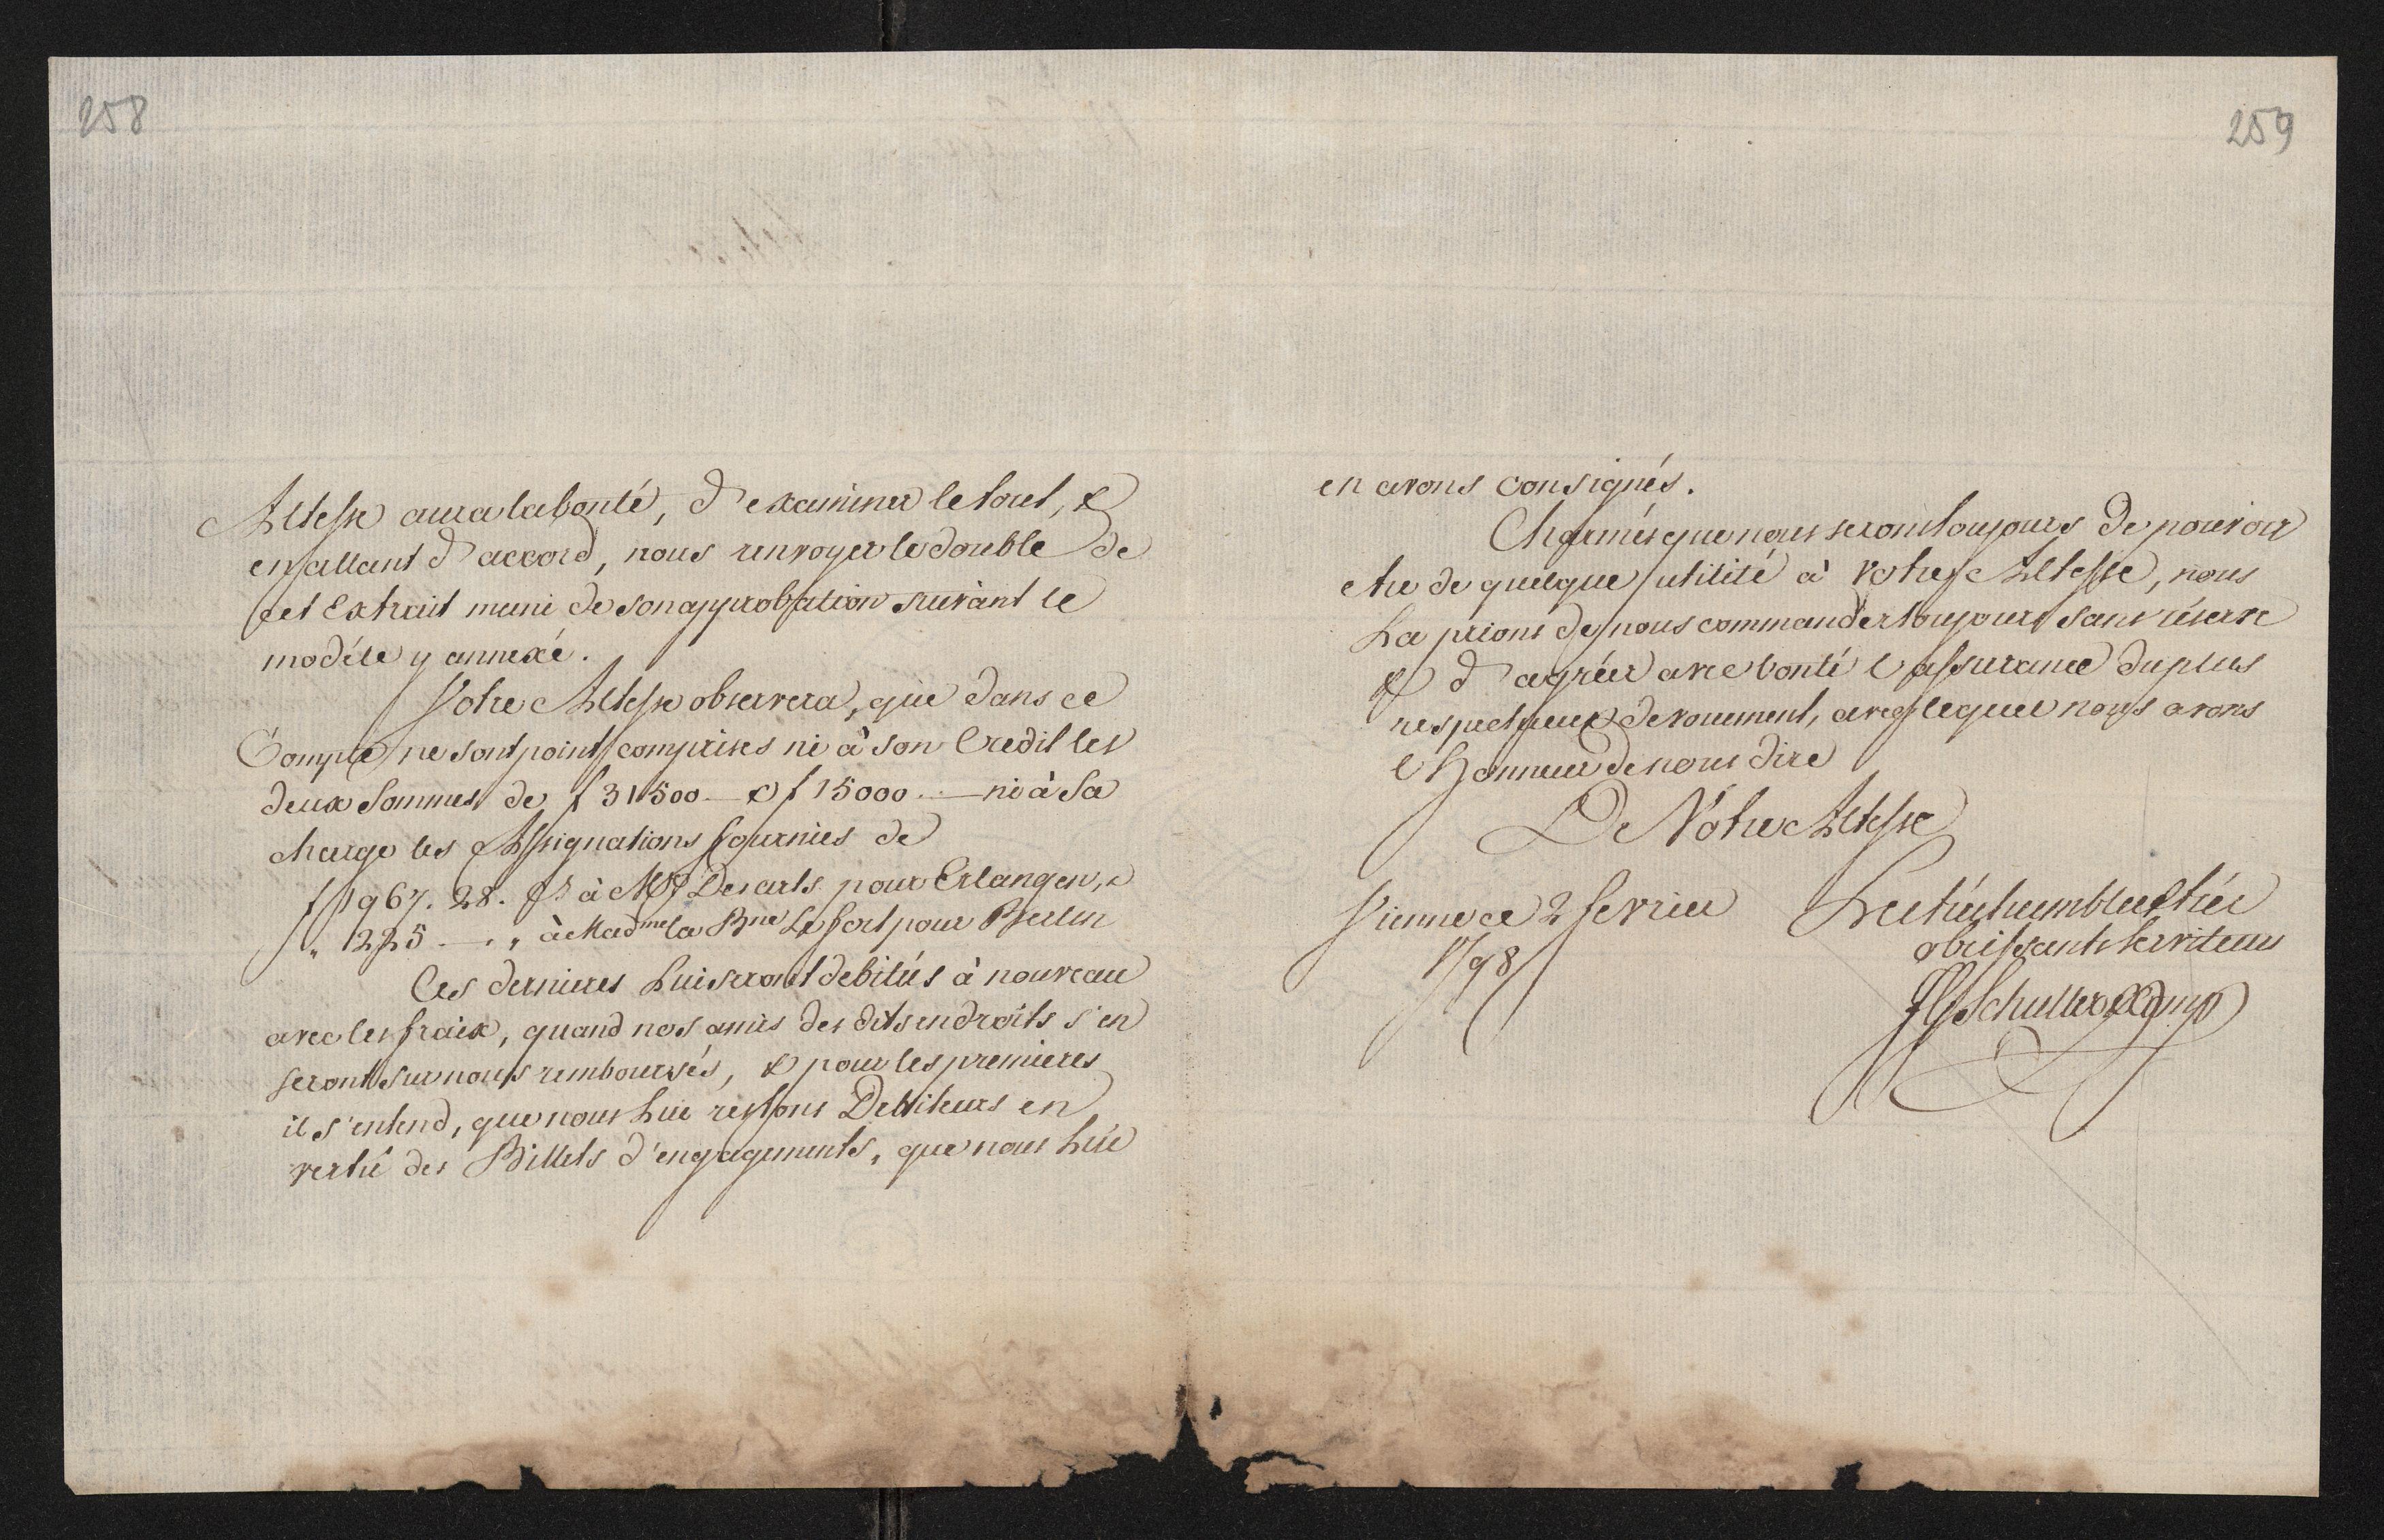 258
Altesse aura la bonté, d'examiner le tout, &
en allant d'accord, nous renvoyer le double de
cet Extrait muni de son approbation suivant le
modéle y annexé.
Votre Altesse observera, que dans ce
Compte ne sont point comprises ni à son Credit les
deux Sommes de f 31500 — & f 15000 .— ni à Sa
charge les Assignations fournies de
f 1967. 28. Xr à Mr Desarts pour Erlangen, &
„ 225 — . „ à Madme la Bne Le fort pour Berlin
Ces dernieres Lui seront debitús à nouveau
avec les fraix, quand nos amis des dits endroits s'en
seront sur nous remboursés, & pour les premieres
il s'entend, que nous Lui restons Debiteurs en
vertú des Billets d'engagements, que nous Lui
259
en avons consignés.
Charmés que nous serons toujours de pouvoir
etre de quelque utilité à Votre Altesse, nous
La prions de nous commander toujours sans réserve
& d'agréer avec bonté l'assurance du plus
respectueux devouement, avec lequel nous avons
l'Honneur de nous dire
De Votre Altesse
Vienne ce 2 fevrier
1798
Les trés humbles & trés
obeissants Serviteurs
Schuller & Comp